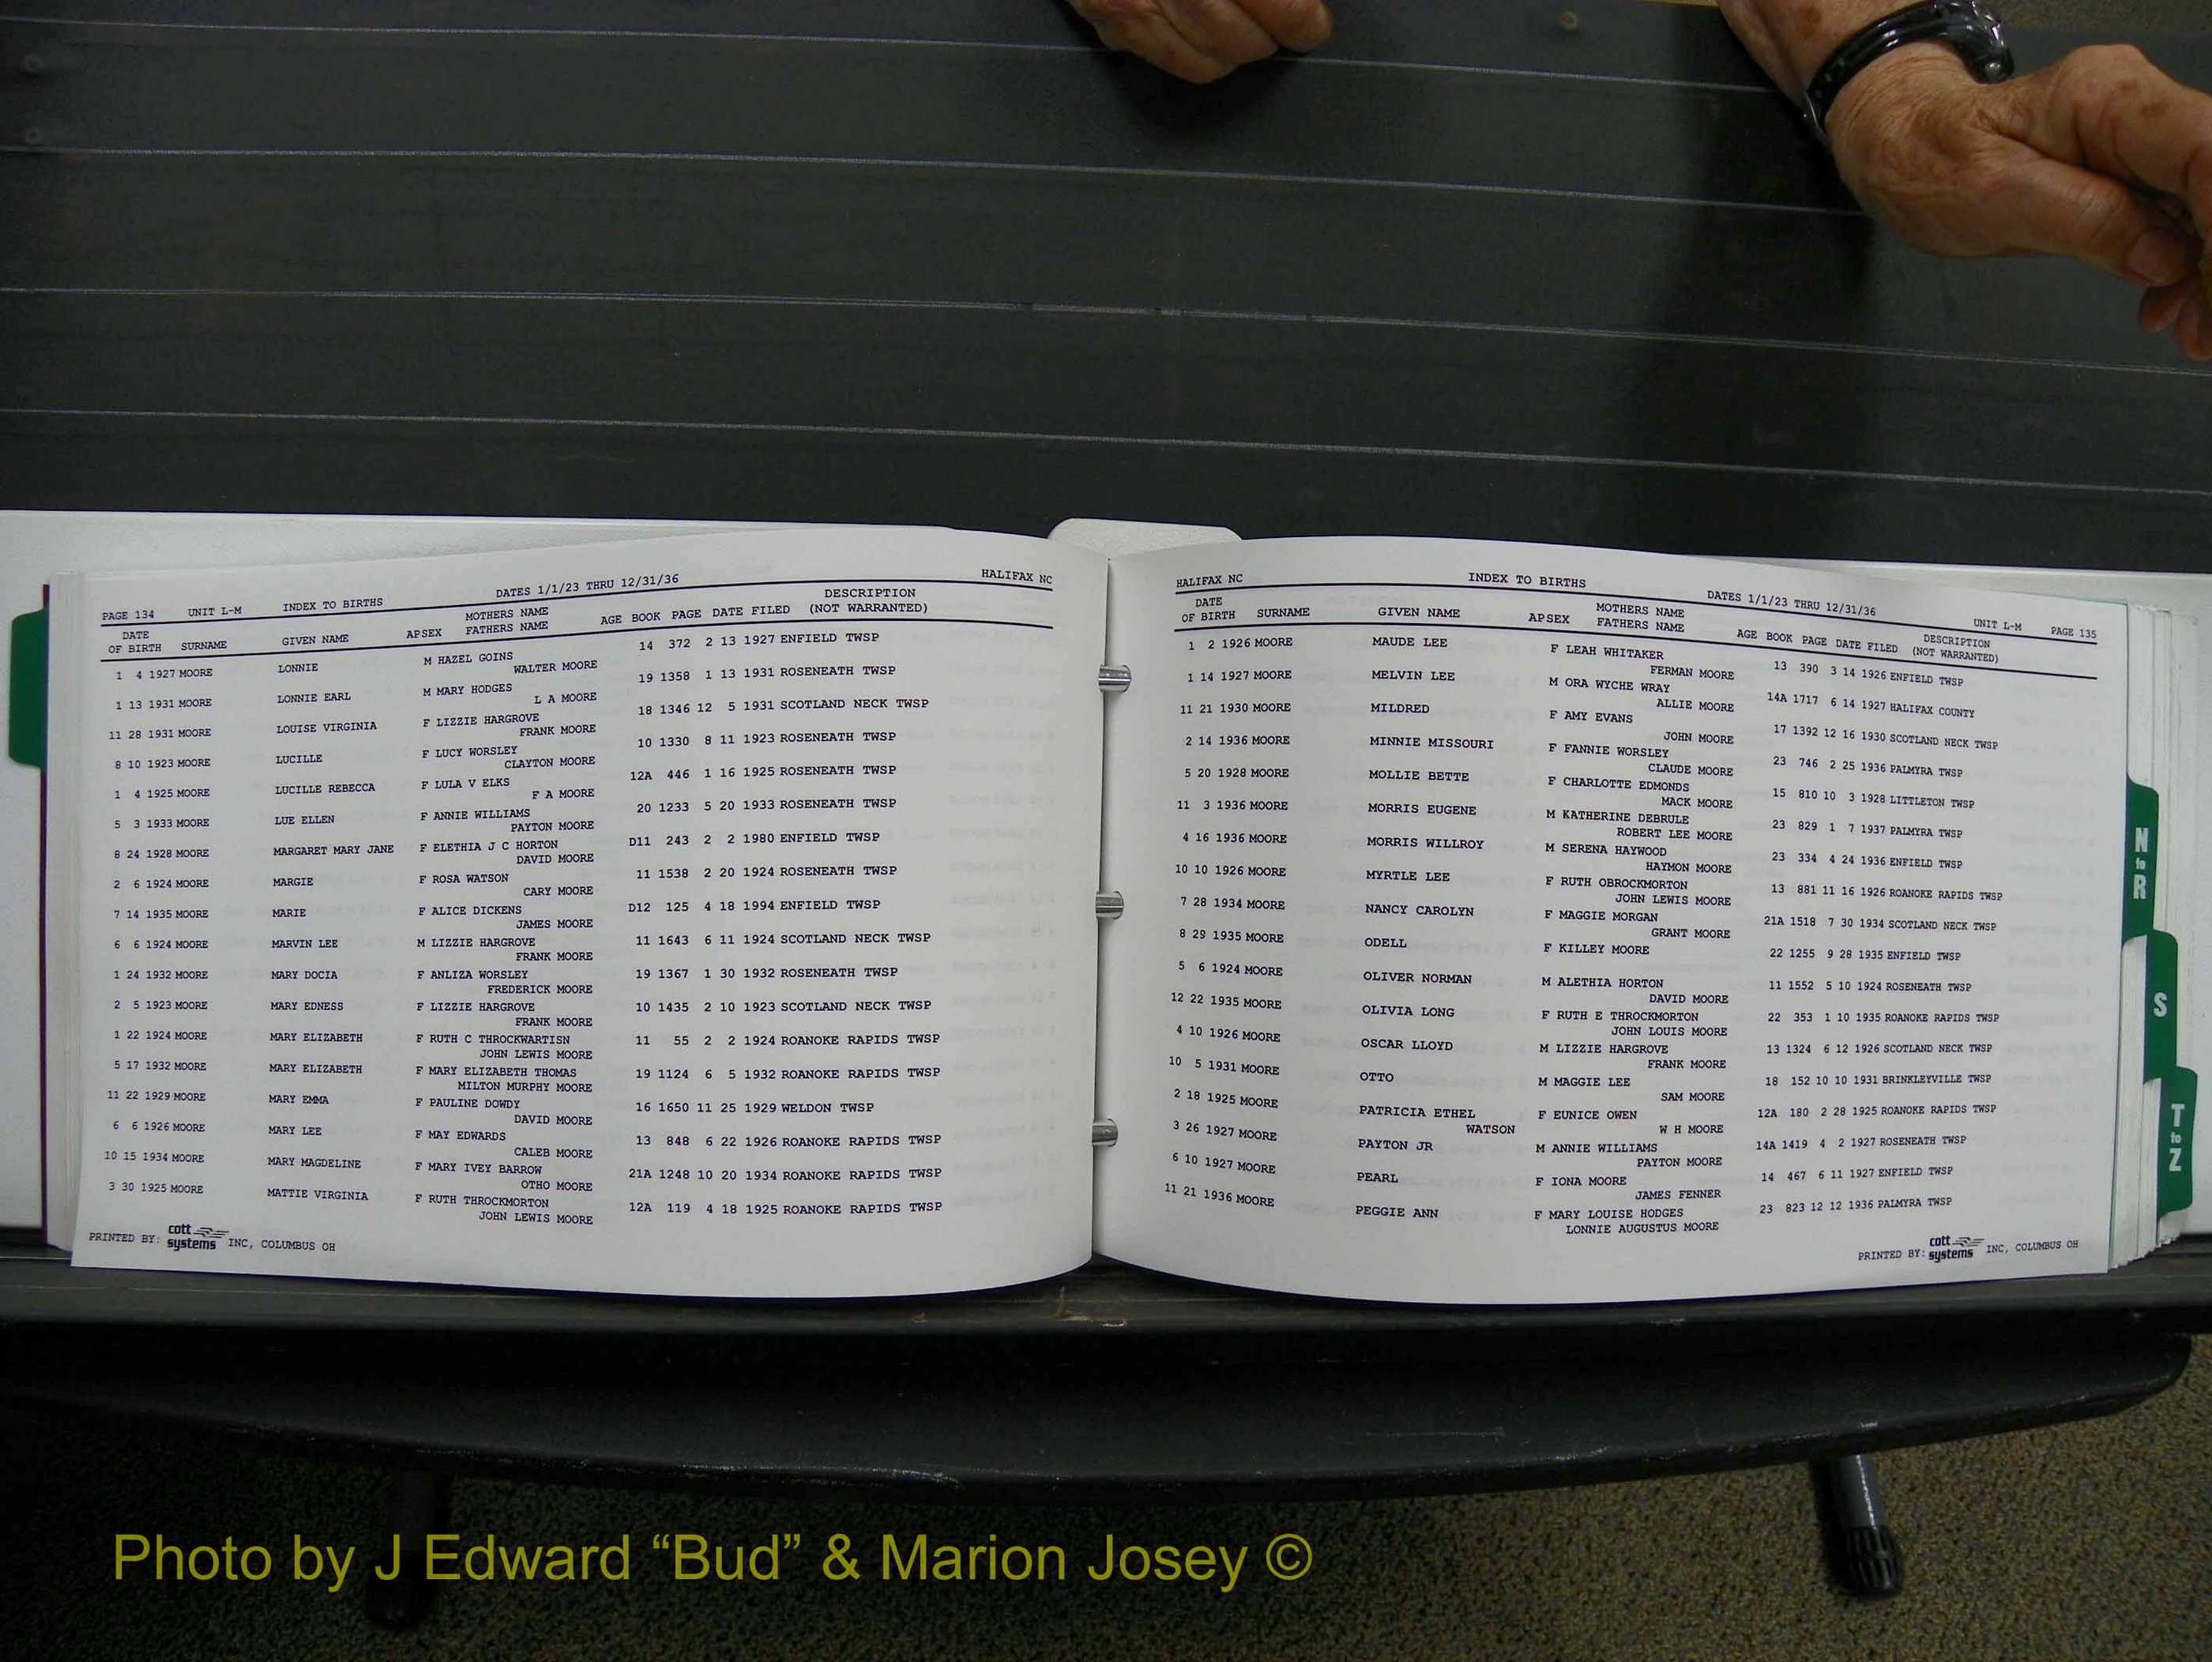 PAGE 134 UNIT L-M INDEX TO BIRTHS DATES 1/1/23 THRU 12/31/36 HALIFAX NC
DATE OF BIRTH SURNAME GIVEN NAME APSEX MOTHERS NAME FATHERS NAME AGE BOOK PAGE DATE FILED DESCRIPTION (NOT WARRANTED)
1 4 1927 MOORE LONNIE M HAZEL GOINS 14 372 2 13 1927 ENFIELD TWSP
WALTER MOORE
1 13 1931 MOORE LONNIE EARL M MARY HODGES 19 1358 1 13 1931 ROSENEATH TWSP
L A MOORE
11 28 1931 MOORE LOUISE VIRGINIA F LIZZIE HARGROVE 18 1346 12 5 1931 SCOTLAND NECK TWSP
FRANK MOORE
8 10 1923 MOORE LUCILLE F LUCY WORSLEY 10 1330 8 11 1923 ROSENEATH TWSP
CLAYTON MOORE
1 4 1925 MOORE LUCILLE REBECCA F LULA V ELKS 12A 446 1 16 1925 ROSENEATH TWSP
F A MOORE
5 3 1933 MOORE LUE ELLEN F ANNIE WILLIAMS 20 1233 5 20 1933 ROSENEATH TWSP
PAYTON MOORE
8 24 1928 MOORE MARGARET MARY JANE F ELETHIA J C HORTON D11 243 2 2 1980 ENFIELD TWSP
DAVID MOORE
2 6 1924 MOORE MARGIE F ROSA WATSON 11 1538 2 20 1924 ROSENEATH TWSP
CARY MOORE
7 14 1935 MOORE MARIE F ALICE DICKENS D12 125 4 18 1994 ENFIELD TWSP
JAMES MOORE
6 6 1924 MOORE MARVIN LEE M LIZZIE HARGROVE 11 1643 6 11 1924 SCOTLAND NECK TWSP
FRANK MOORE
1 24 1932 MOORE MARY DOCIA F ANLIZA WORSLEY 19 1367 1 30 1932 ROSENEATH TWSP
FREDERICK MOORE
2 5 1923 MOORE MARY EDNESS F LIZZIE HARGROVE 10 1435 2 10 1923 SCOTLAND NECK TWSP
FRANK MOORE
1 22 1924 MOORE MARY ELIZABETH F RUTH C THROCKWARTISN 11 55 2 2 1924 ROANOKE RAPIDS TWSP
JOHN LEWIS MOORE
5 17 1932 MOORE MARY ELIZABETH F MARY ELIZABETH THOMAS 19 1124 6 5 1932 ROANOKE RAPIDS TWSP
MILTON MURPHY MOORE
11 22 1929 MOORE MARY EMMA F PAULINE DOWDY 16 1650 11 25 1929 WELDON TWSP
DAVID MOORE
6 6 1926 MOORE MARY LEE F MAY EDWARDS 13 848 6 22 1926 ROANOKE RAPIDS TWSP
CALEB MOORE
10 15 1934 MOORE MARY MAGDELINE F MARY IVEY BARROW 21A 1248 10 20 1934 ROANOKE RAPIDS TWSP
OTHO MOORE
3 30 1925 MOORE MATTIE VIRGINIA F RUTH THROCKMORTON 12A 119 4 18 1925 ROANOKE RAPIDS TWSP
JOHN LEWIS MOORE
PRINTED BY: cott systems INC, COLUMBUS OH
HALIFAX NC INDEX TO BIRTHS DATES 1/1/23 THRU 12/31/36 UNIT L-M PAGE 135
DATE OF BIRTH SURNAME GIVEN NAME APSEX MOTHERS NAME FATHERS NAME AGE BOOK PAGE DATE FILED DESCRIPTION (NOT WARRANTED)
1 2 1926 MOORE MAUDE LEE F LEAH WHITAKER 13 390 3 14 1926 ENFIELD TWSP
FERMAN MOORE
1 14 1927 MOORE MELVIN LEE M ORA WYCHE WRAY 14A 1717 6 14 1927 HALIFAX COUNTY
ALLIE MOORE
11 21 1930 MOORE MILDRED F AMY EVANS 17 1392 12 16 1930 SCOTLAND NECK TWSP
JOHN MOORE
2 14 1936 MOORE MINNIE MISSOURI F FANNIE WORSLEY 23 746 2 25 1936 PALMYRA TWSP
CLAUDE MOORE
5 20 1928 MOORE MOLLIE BETTE F CHARLOTTE EDMONDS 15 810 10 3 1928 LITTLETON TWSP
MACK MOORE
11 3 1936 MOORE MORRIS EUGENE M KATHERINE DEBRULE 23 829 1 7 1937 PALMYRA TWSP
ROBERT LEE MOORE
4 16 1936 MOORE MORRIS WILLROY M SERENA HAYWOOD 23 334 4 24 1936 ENFIELD TWSP
HAYMON MOORE
10 10 1926 MOORE MYRTLE LEE F RUTH OBROCKMORTON 13 881 11 16 1926 ROANOKE RAPIDS TWSP
JOHN LEWIS MOORE
7 28 1934 MOORE NANCY CAROLYN F MAGGIE MORGAN 21A 1518 7 30 1934 SCOTLAND NECK TWSP
GRANT MOORE
8 29 1935 MOORE ODELL F KILLEY MOORE 22 1255 9 28 1935 ENFIELD TWSP
5 6 1924 MOORE OLIVER NORMAN M ALETHIA HORTON 11 1552 5 10 1924 ROSENEATH TWSP
DAVID MOORE
12 22 1935 MOORE OLIVIA LONG F RUTH E THROCKMORTON 22 353 1 10 1935 ROANOKE RAPIDS TWSP
JOHN LOUIS MOORE
4 10 1926 MOORE OSCAR LLOYD M LIZZIE HARGROVE 13 1324 6 12 1926 SCOTLAND NECK TWSP
FRANK MOORE
10 5 1931 MOORE OTTO M MAGGIE LEE 18 152 10 10 1931 BRINKLEYVILLE TWSP
SAM MOORE
2 18 1925 MOORE PATRICIA ETHEL F EUNICE OWEN 12A 180 2 28 1925 ROANOKE RAPIDS TWSP
WATSON W H MOORE
3 26 1927 MOORE PAYTON JR M ANNIE WILLIAMS 14A 1419 4 2 1927 ROSENEATH TWSP
PAYTON MOORE
6 10 1927 MOORE PEARL F IONA MOORE 14 467 6 11 1927 ENFIELD TWSP
JAMES FENNER
11 21 1936 MOORE PEGGIE ANN F MARY LOUISE HODGES 23 823 12 12 1936 PALMYRA TWSP
LONNIE AUGUSTUS MOORE
PRINTED BY: cott systems INC, COLUMBUS OH
N to R
S
T to Z
Photo by J Edward “Bud” & Marion Josey ©